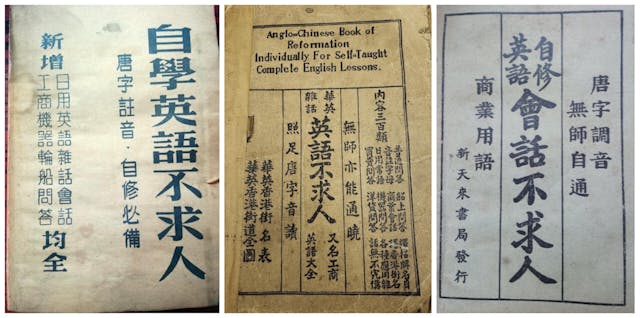 自學英語不求人
唐字註音·自修必備
新增
日用英語雜話會話
工商機器輪船問答
均全
Anglo=Chinese Book of
Reformation
Individually For Self-Taught
Complete English Lessons.
內容三百類
無師亦能通曉
華英
雜話
英語不求人
又名工商
英語大全
照足唐字音讀
華英香港街名表
華英香港街道全圖
唐字調音
無師自通
自修
英語
會話不求人
商業用語
新天來書局發行